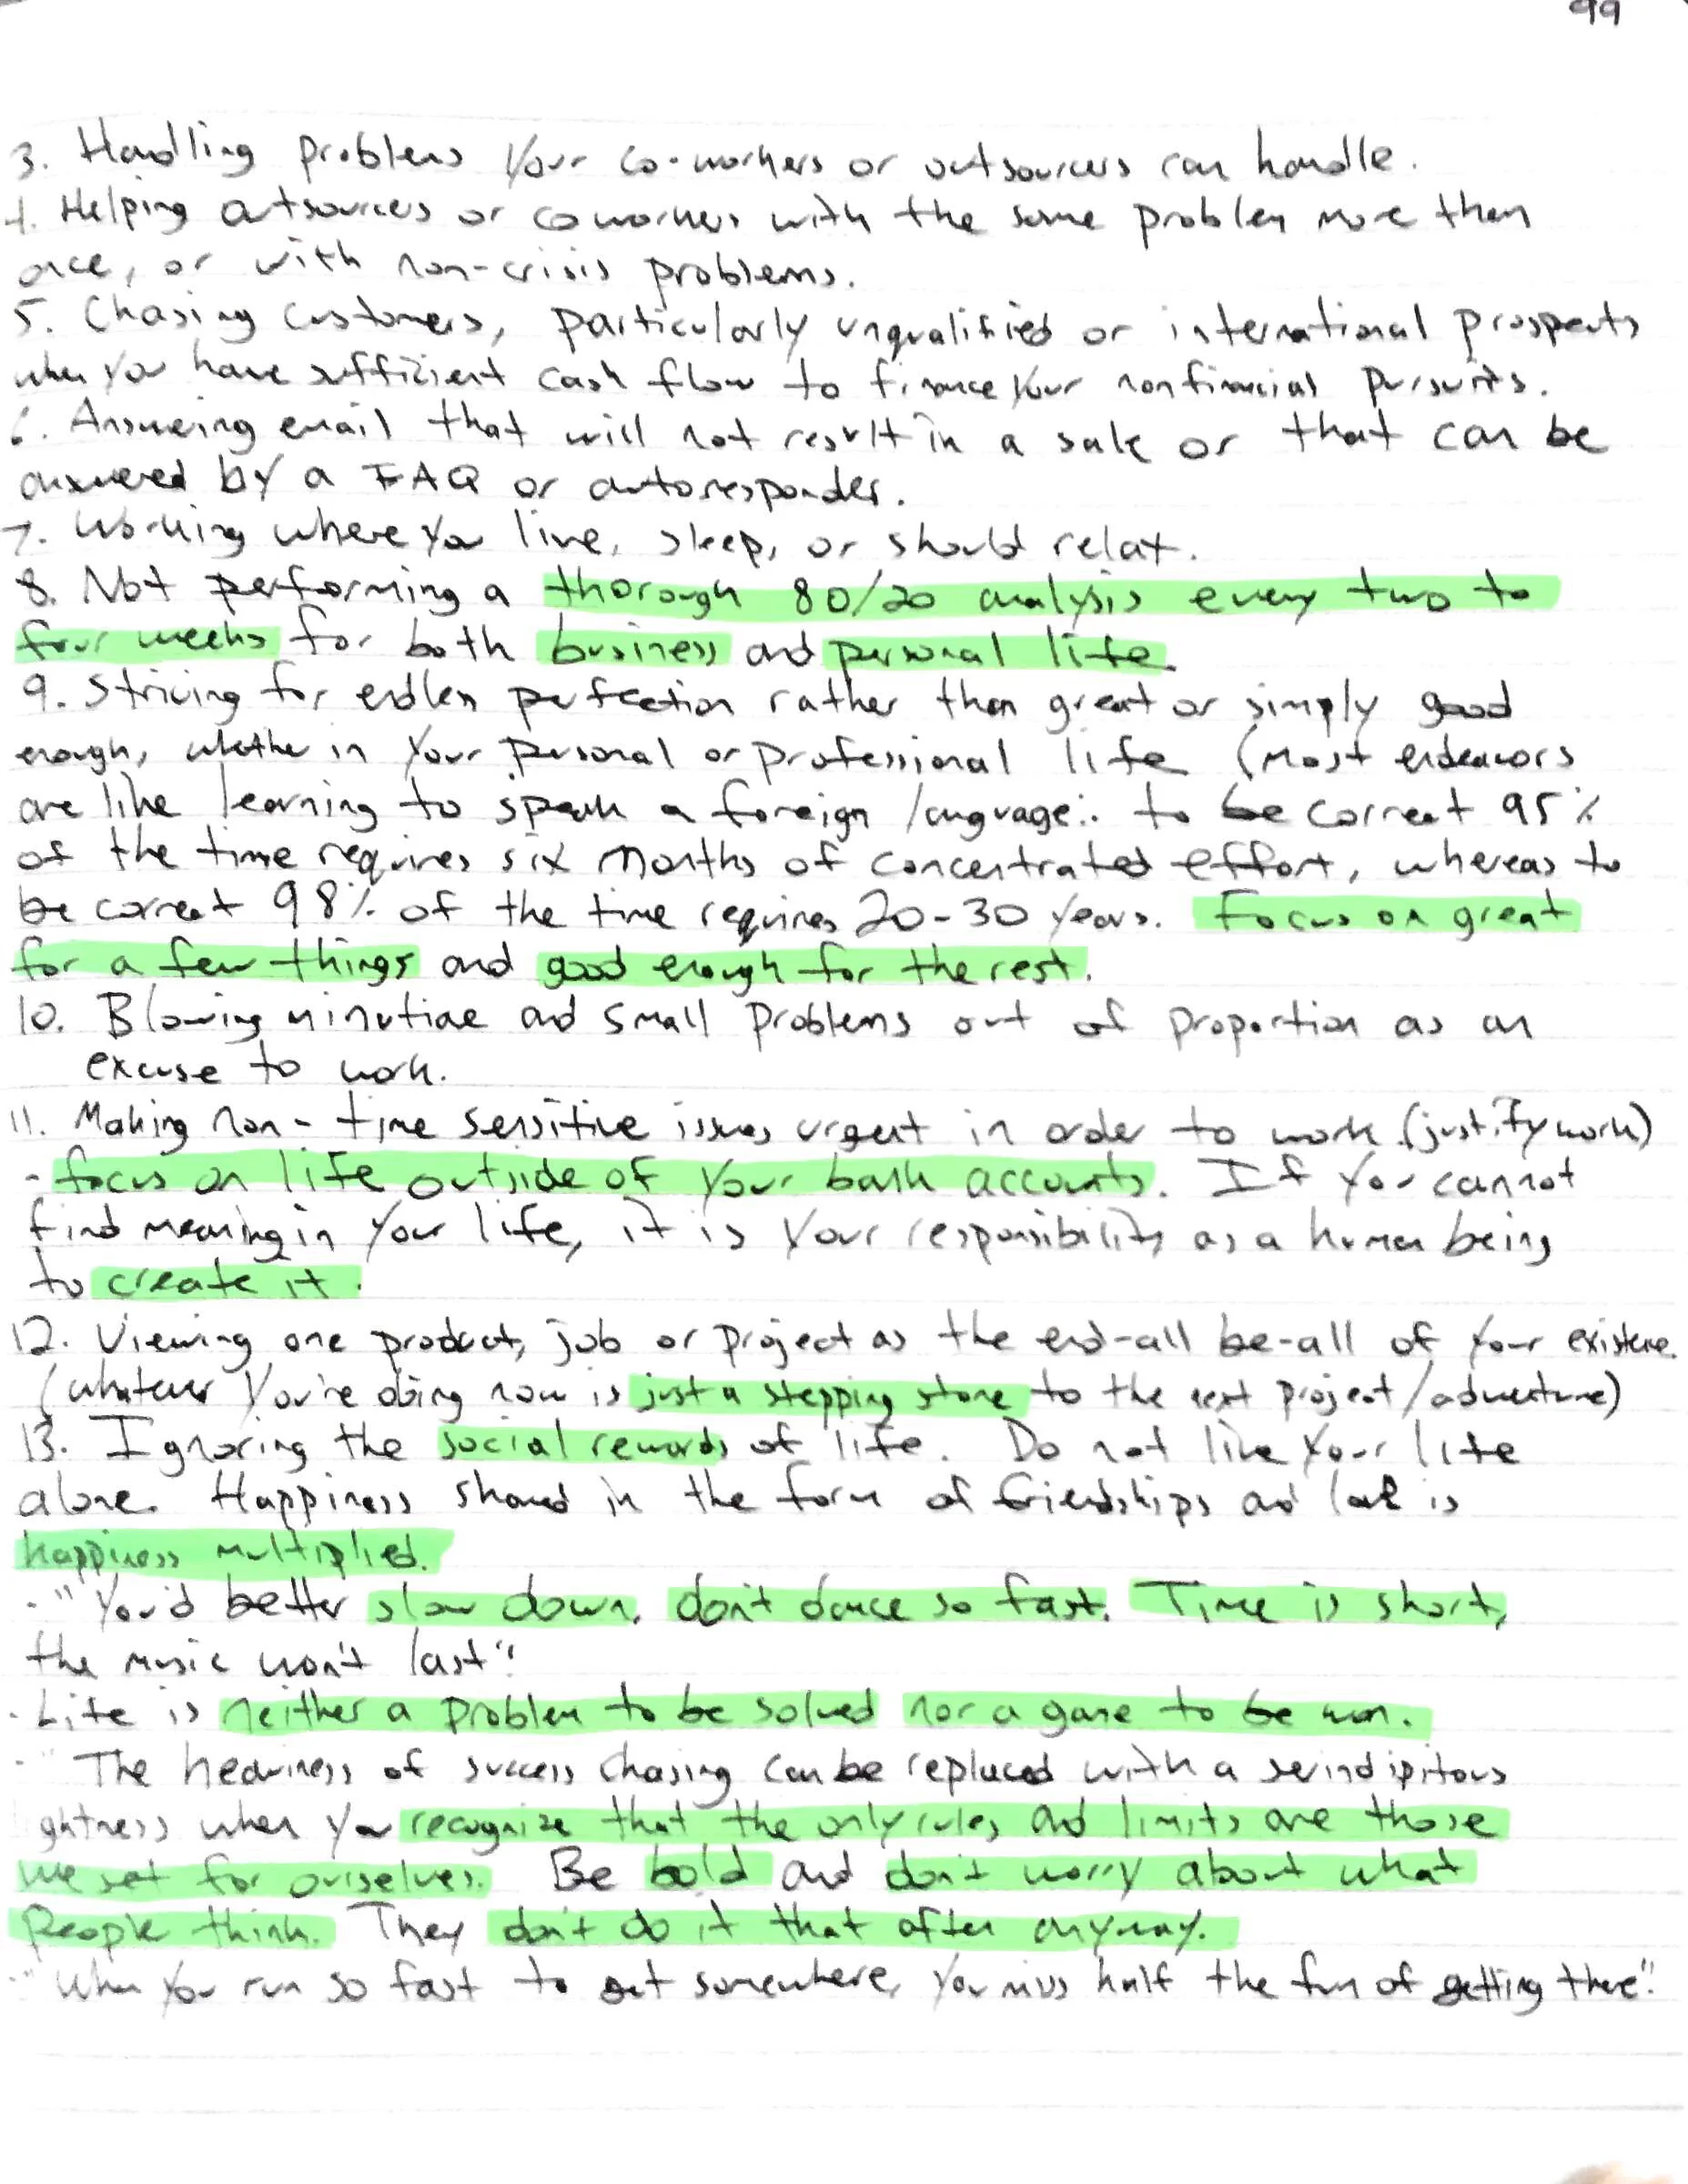 99
3. Handling problems your co-workers or outsourcers can handle.
4. Helping outsourcers or coworkers with the same problem more than
once, or with non-crisis problems.
5. Chasing customers, particularly unqualified or international prospects
when you have sufficient cash flow to finance your nonfinancial pursuits.
6. Answering email that will not result in a sale or that can be
answered by a FAQ or autoresponder.
7. Working where you live, sleep, or should relax.
8. Not performing a thorough 80/20 analysis every two to
four weeks for both business and personal life.
9. Striving for endless perfection rather than great or simply good
enough, whether in your personal or professional life (Most endeavors
are like learning to speak a foreign language: to be correct 95%
of the time requires six months of concentrated effort, whereas to
be correct 98% of the time requires 20-30 years. Focus on great
for a few things and good enough for the rest.
10. Blowing minutiae and small problems out of proportion as an
excuse to work.
11. Making non-time sensitive issues urgent in order to work. (justify work)
- focus on life outside of your bank accounts. If you cannot
find meaning in your life, it is your responsibility as a human being
to create it.
12. Viewing one product, job or project as the end-all be-all of your existence.
(whatever you're doing now is just a stepping stone to the next project/adventure)
13. Ignoring the social rewards of life. Do not live your life
alone. Happiness shared in the form of friendships and love is
happiness multiplied.
- "You'd better slow down, don't dance so fast. Time is short,
the music won't last".
- Life is neither a problem to be solved nor a game to be won.
- "The heaviness of success chasing can be replaced with a serindipitous
ightness when you recognize that the only rules and limits are those
we set for ourselves. Be bold and don't worry about what
people think. They don't do it that often anyway.
- "When you run so fast to get somewhere, you miss half the fun of getting there".